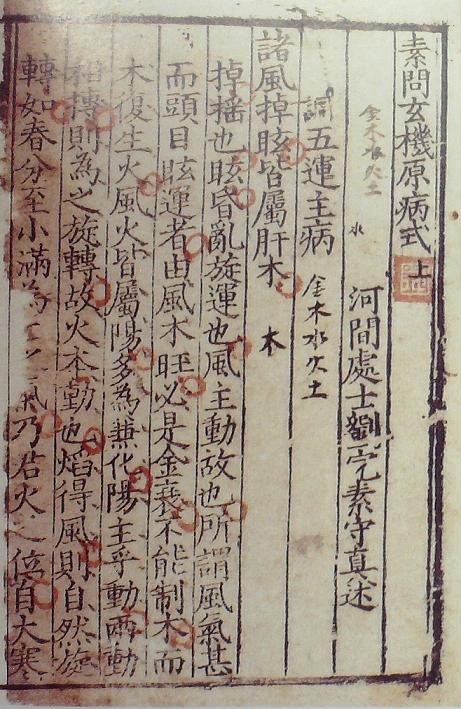 素問玄機原病式上
金木水火土
水
河間處士劉完素守真述
五運主病 金木水火土
諸風掉眩皆屬肝木 木
掉摇也眩昏亂旋運也風主動故也所謂風氣甚
而頭目眩運者由風木旺必是金衰不能制木而
木復生火風火皆屬陽多為兼化陽主乎動兩動
相摶則為之旋轉故火本動也焰得風則自然旋
轉如春分至小滿為乃君火之位自大寒